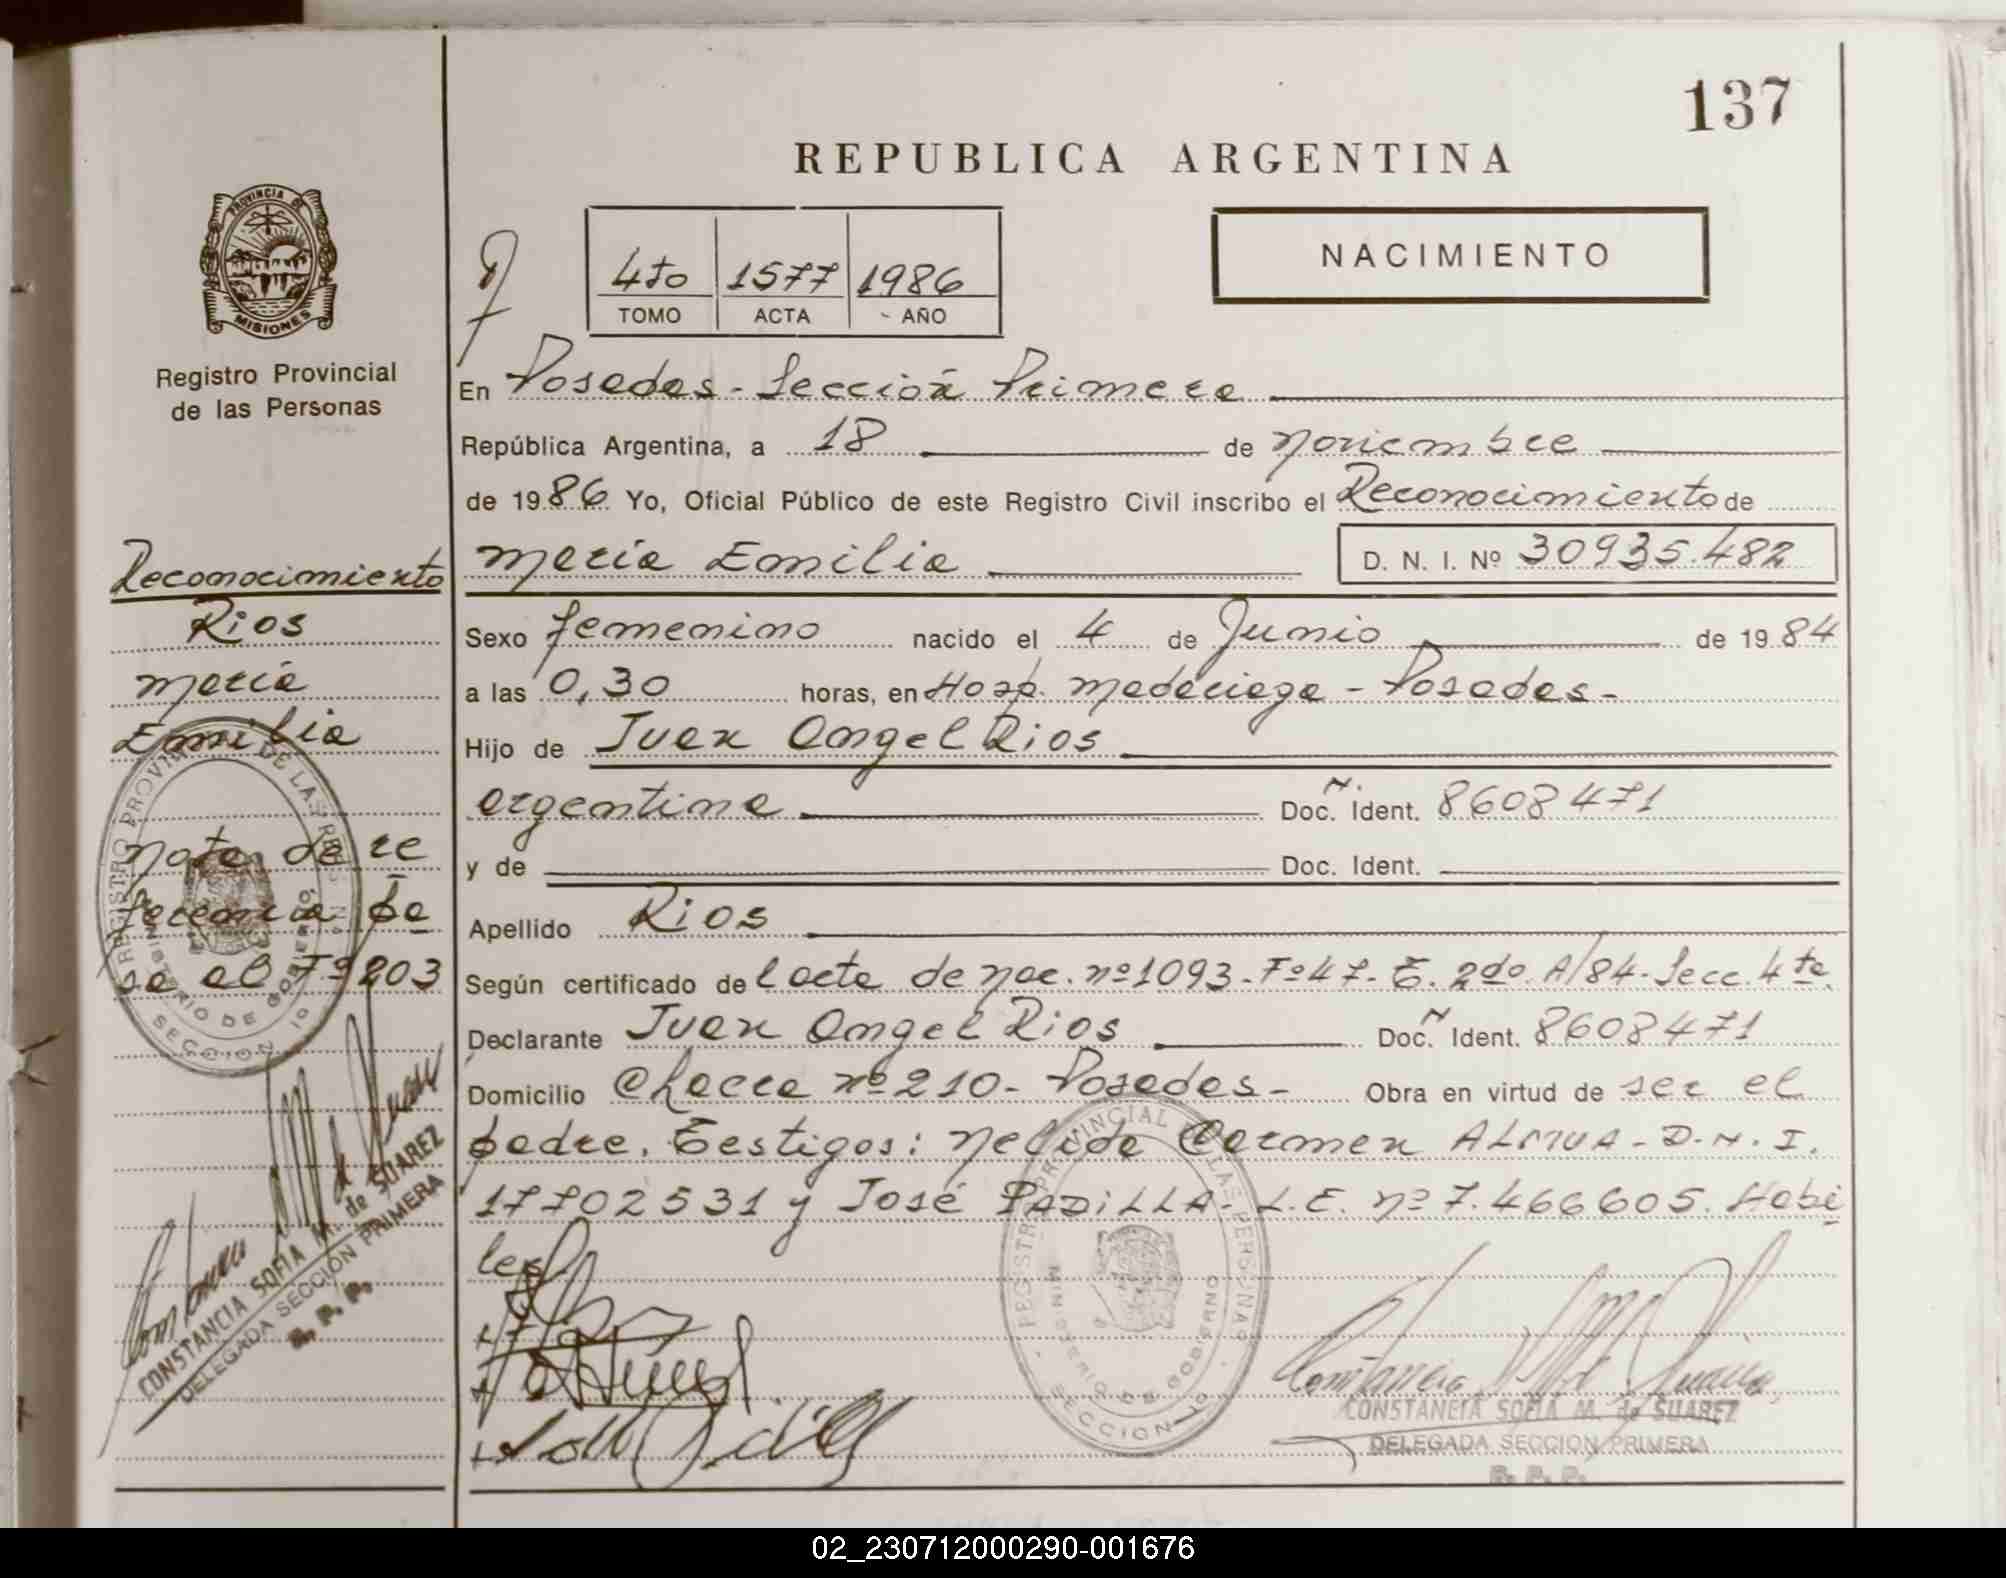 137
REPUBLICA ARGENTINA
PROVINCIA DE
MISIONES
Registro Provincial
de las Personas
4to 1577 1986
TOMO ACTA AÑO
NACIMIENTO
En Posadas - Sección Primera
República Argentina, a 18 de noviembre
de 1986 Yo, Oficial Público de este Registro Civil inscribo el Reconocimiento de
maría Emilia D. N. I. Nº 30935.482
Sexo femenino nacido el 4 de Junio de 1984
a las 0,30 horas, en Hosp. Madariaga - Posadas -
Hijo de Juan Angel Rios
argentina Doc. Ident. 8608471
y de Doc. Ident.
Apellido Rios
Según certificado de l acta de nac. nº 1093 - Fº 47 - T. 2do. A/84 - Secc. 4ta.
Declarante Juan Angel Rios Doc. Ident. 8608471
Domicilio Chacra nº 210 - Posadas - Obra en virtud de ser el
padre. Testigos: Nelida Carmen ALMUA - D.N.I.
17702531 y José PADILLA - L.E. nº 7.466605. Habi
les
Reconocimiento
Rios
maría
Emilia
nota de re
ferencia pa
sa al Fº 203
REGISTRO PROVINCIAL DE LAS PERSONAS
MINISTERIO DE GOBIERNO
SECCION 1º
CONSTANCIA SOFIA M. de SUAREZ
DELEGADA SECCIÓN PRIMERA
R. P. P.
REGISTRO PROVINCIAL DE LAS PERSONAS
MINISTERIO DE GOBIERNO
SECCION 1º
CONSTANCIA SOFIA M. de SUAREZ
DELEGADA SECCION PRIMERA
R. P. P.
02_230712000290-001676